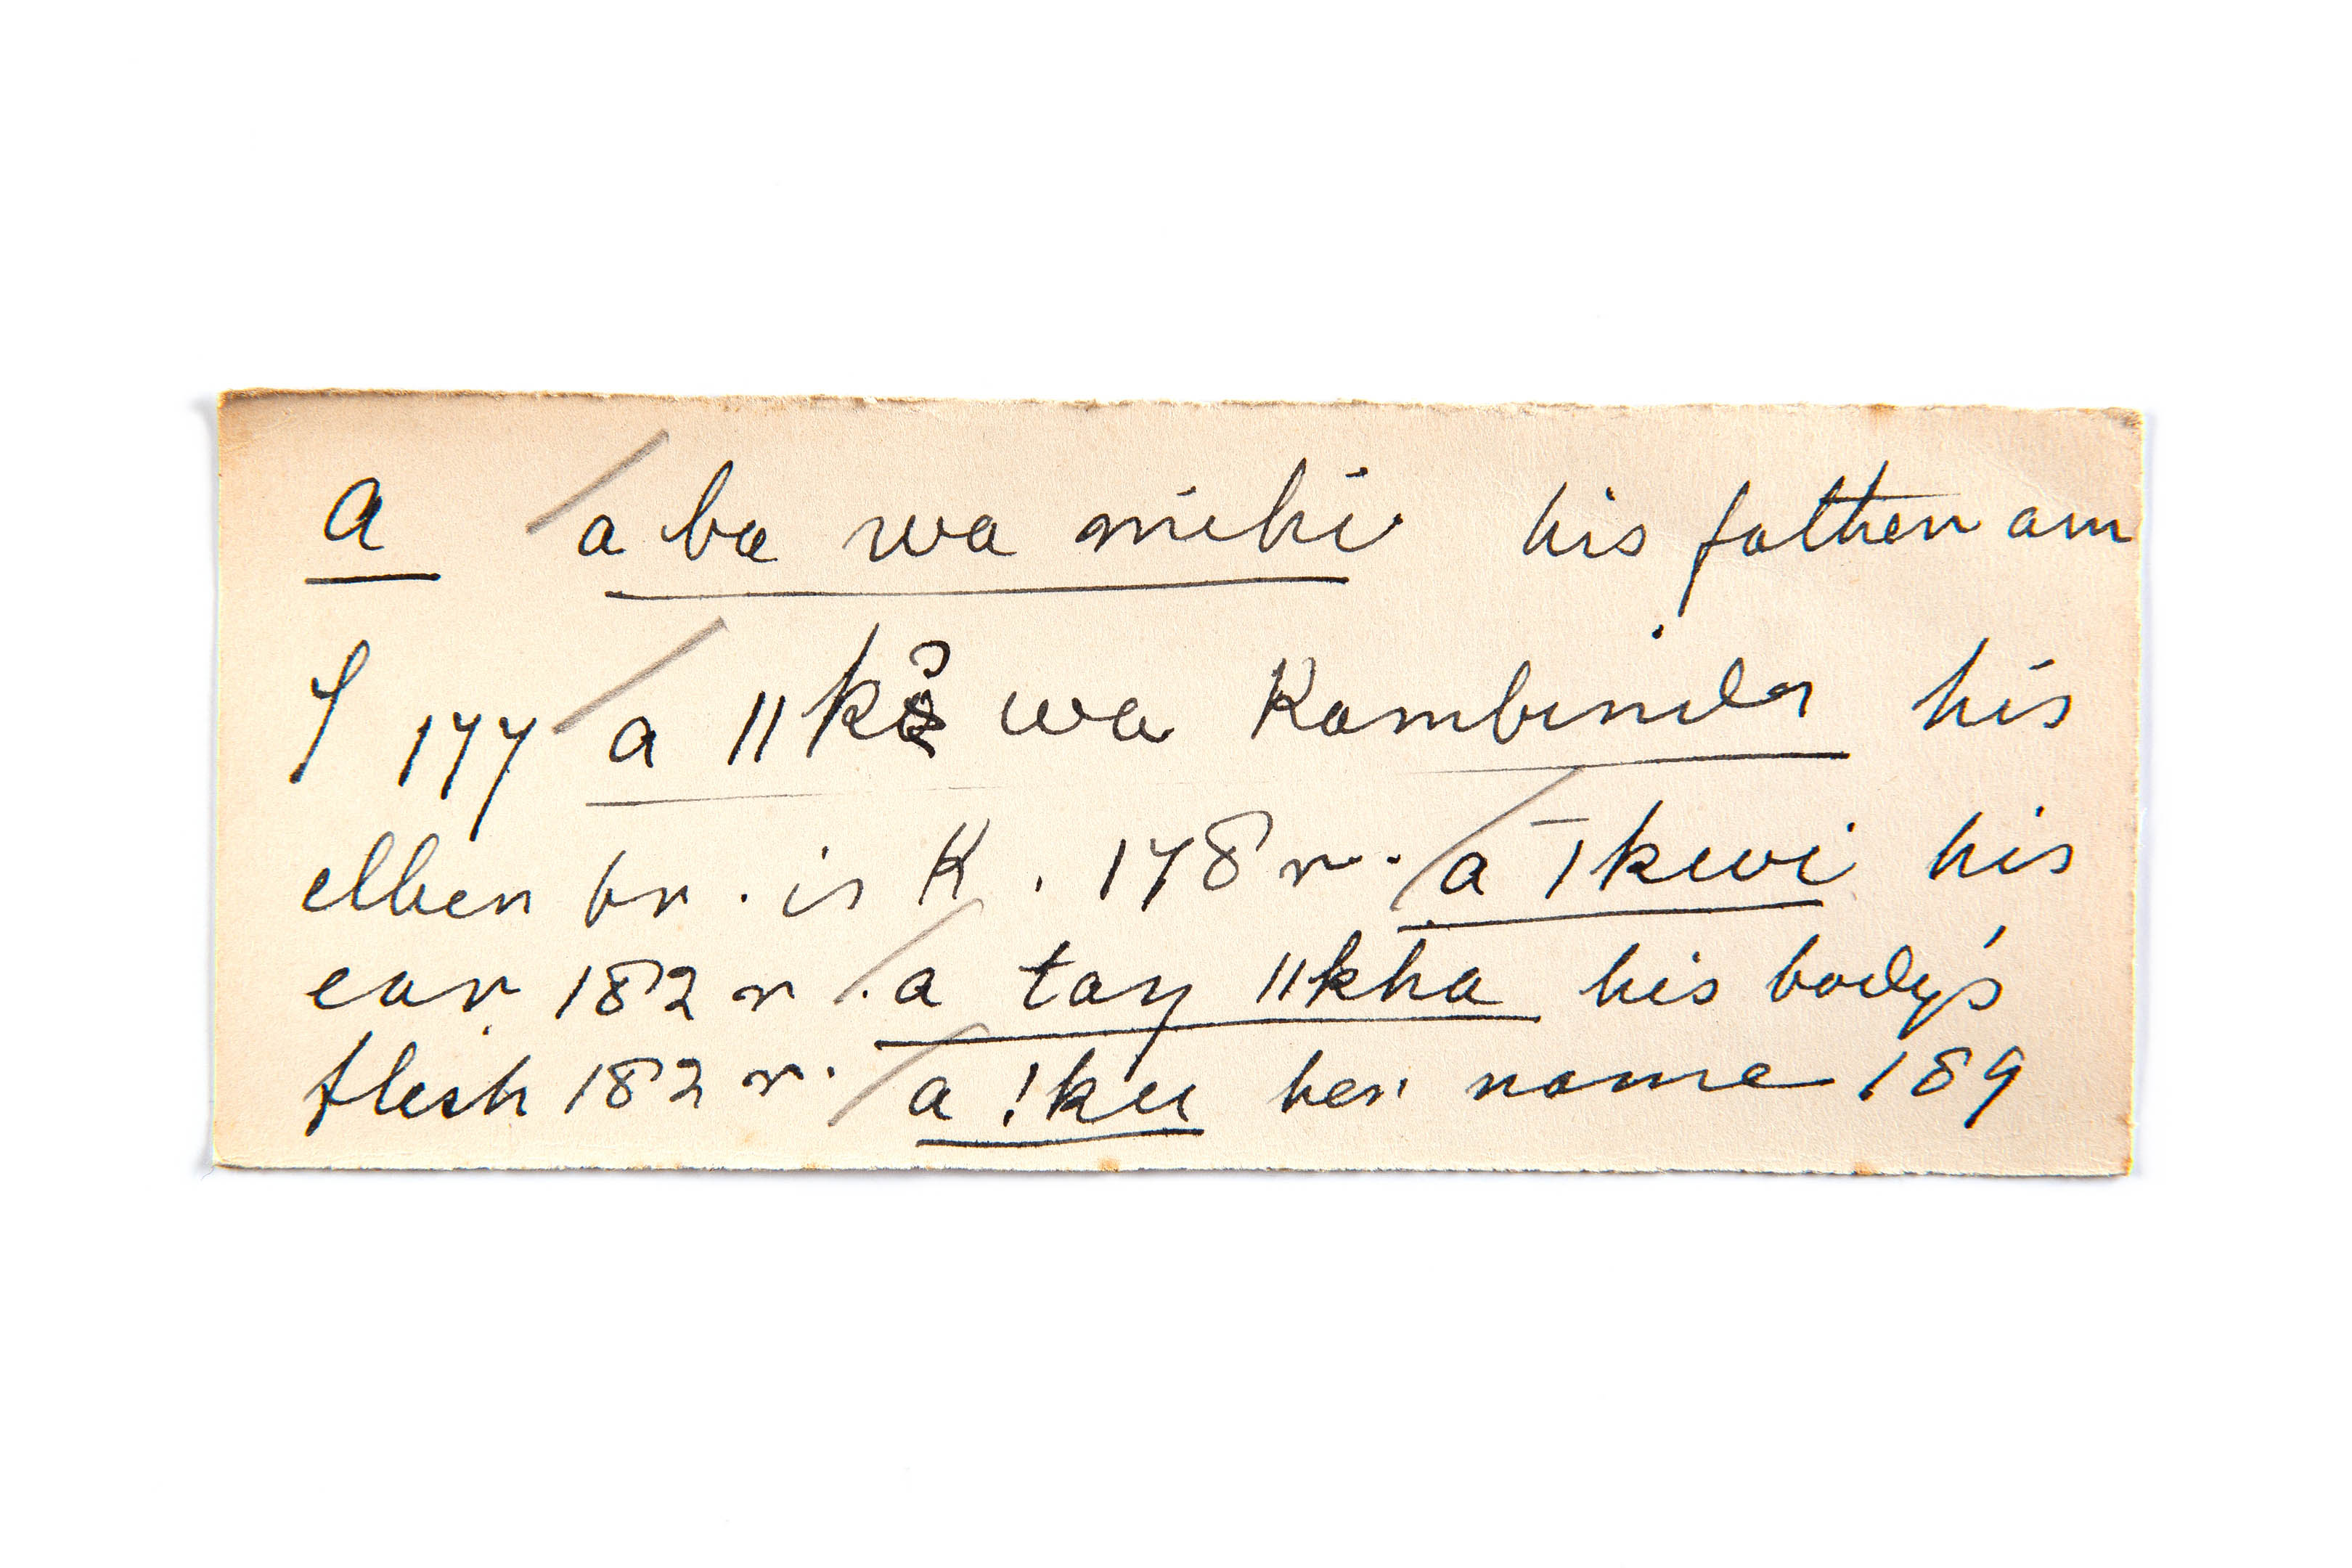 a / a ba wa mihi his father am
I 177 / a ǁkò wa Kambinda his
elder br. is K. 178 r. / a ǀkwi his
ear 182 r. / a taŋ ǁkha his body's
flesh 182 r. / a !ku her name 189